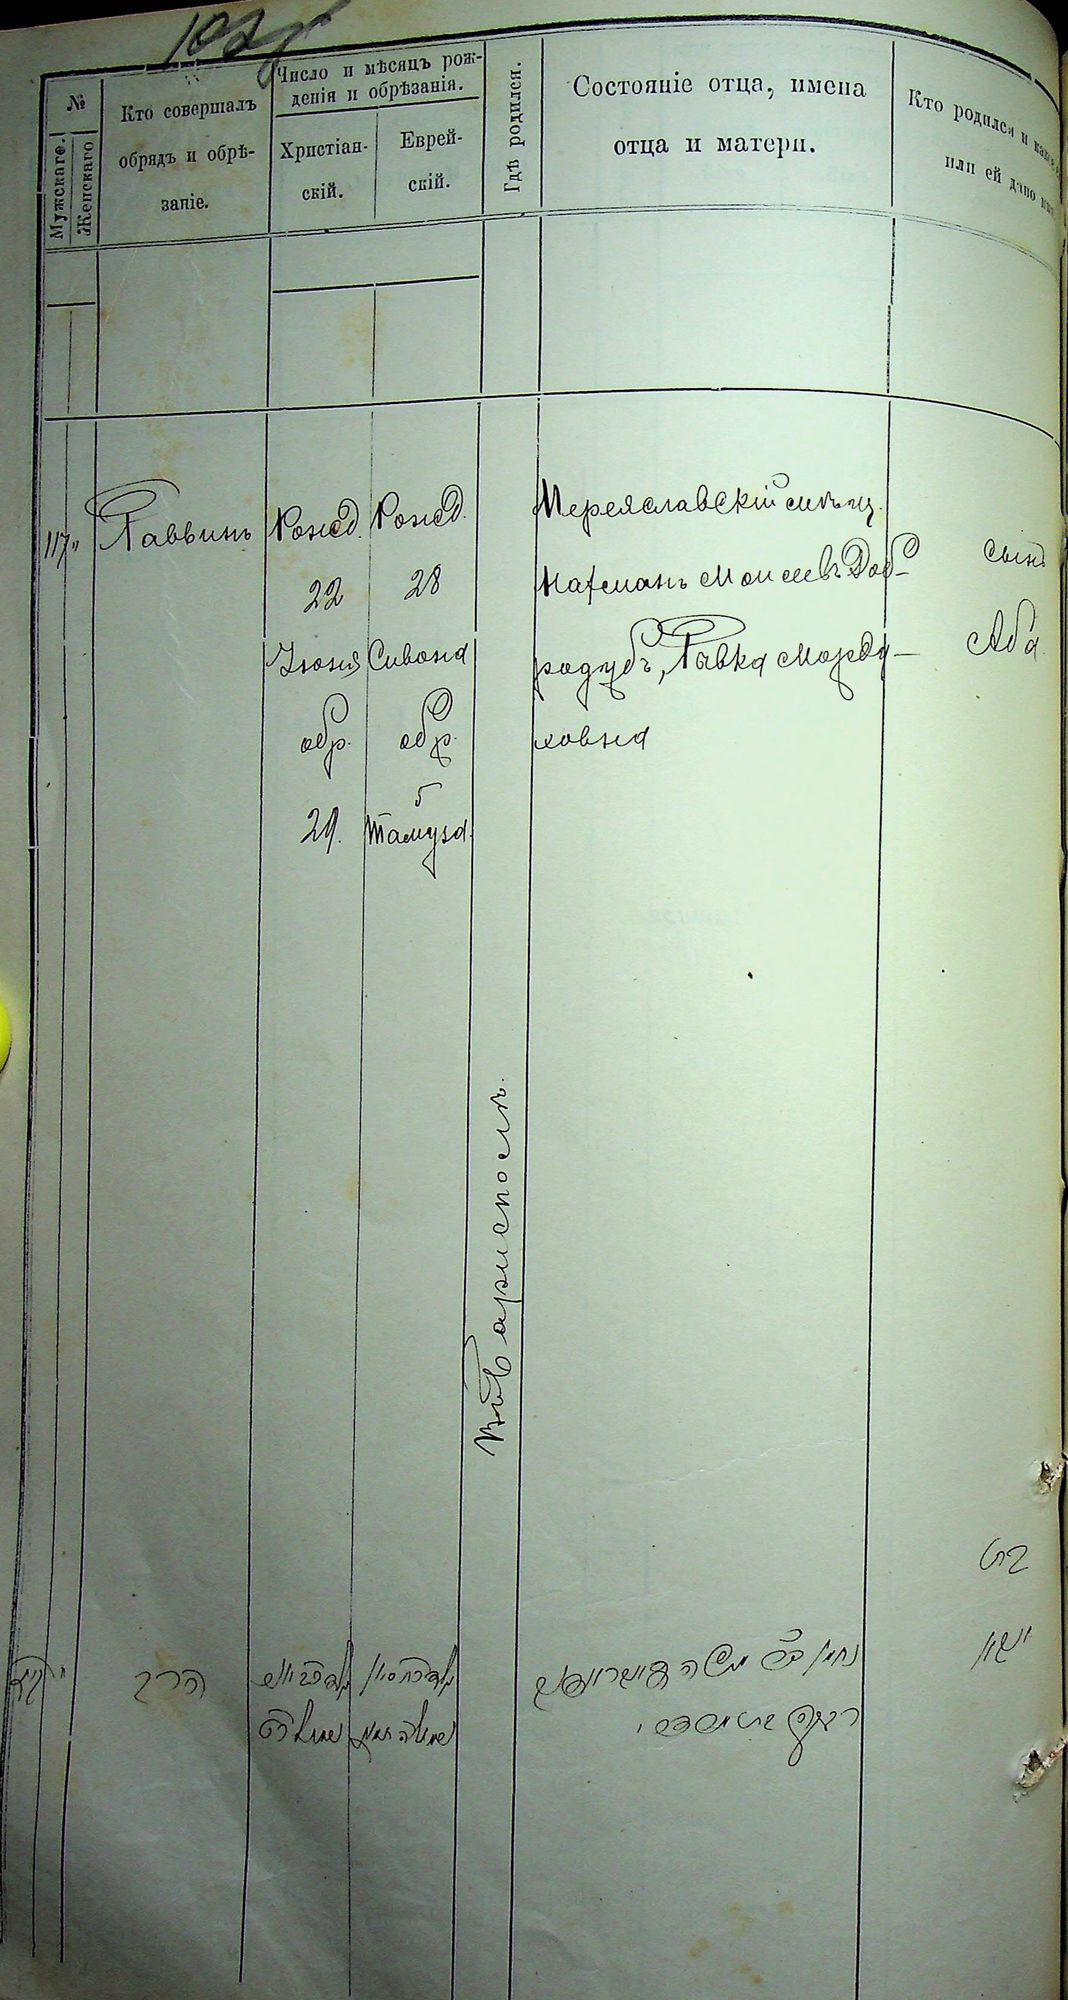 №
Мужскаго.
Женскаго
Кто совершалъ
обрядъ и обрѣ-
заніе.
Число и мѣсяцъ рож-
денія и обрѣзанія.
Христіан-
скій.
Еврей-
скій.
Гдѣ родился.
Состояніе отца, имена
отца и матери.
Кто родился и какое
или ей дано имя
117
Раввинъ
Рожд.
22
Іюня
обр.
29.
Рожд.
28
Сивана
обр.
5
Тамуза.
въ Барисполѣ.
Переяславскій мѣщ.
Нахманъ Моисеевъ Доб-
родубъ, Ривка Мордо-
ховна
сынъ
Аба
הרב